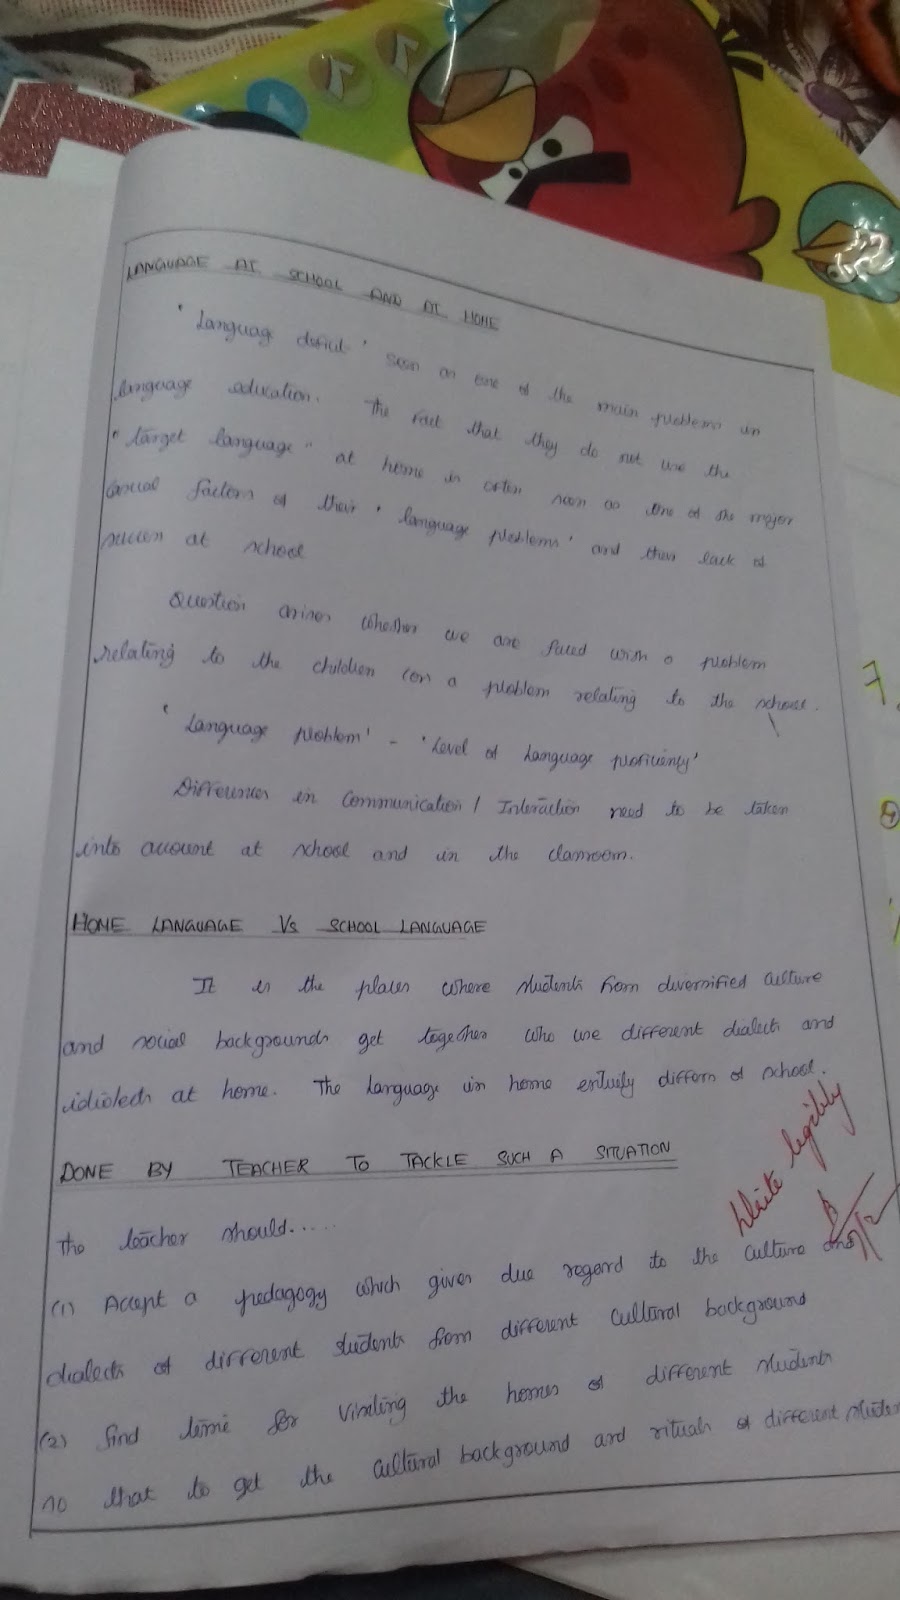 LANGUAGE AT SCHOOL AND AT HOME
'Languag deficit' seen as one of the main problems in
language education. The fact that they do not use the
"target language" at home is often seen as one of the major
causal factors of their 'language problems' and their lack of
success at school
Question arises whether we are faced with a problem
relating to the children (or a problem relating to the school.
'Language problem' - 'Level of Language proficiency'
Differences in Communication / Interaction need to be taken
into account at school and in the classroom.
HOME LANGUAGE Vs SCHOOL LANGUAGE
It is the places where students from diversified culture
and social backgrounds get together who use different dialects and
idiolects at home. The language in home differs of school.
DONE BY TEACHER TO TACKLE SUCH A SITUATION
Write legibly
The teacher should.....
(1) Accept a pedagogy which gives due regard to the culture and
dialects of different students from different cultural background
(2) find time for visiting the homes of different students
so that to get the cultural background and rituals of different
7.